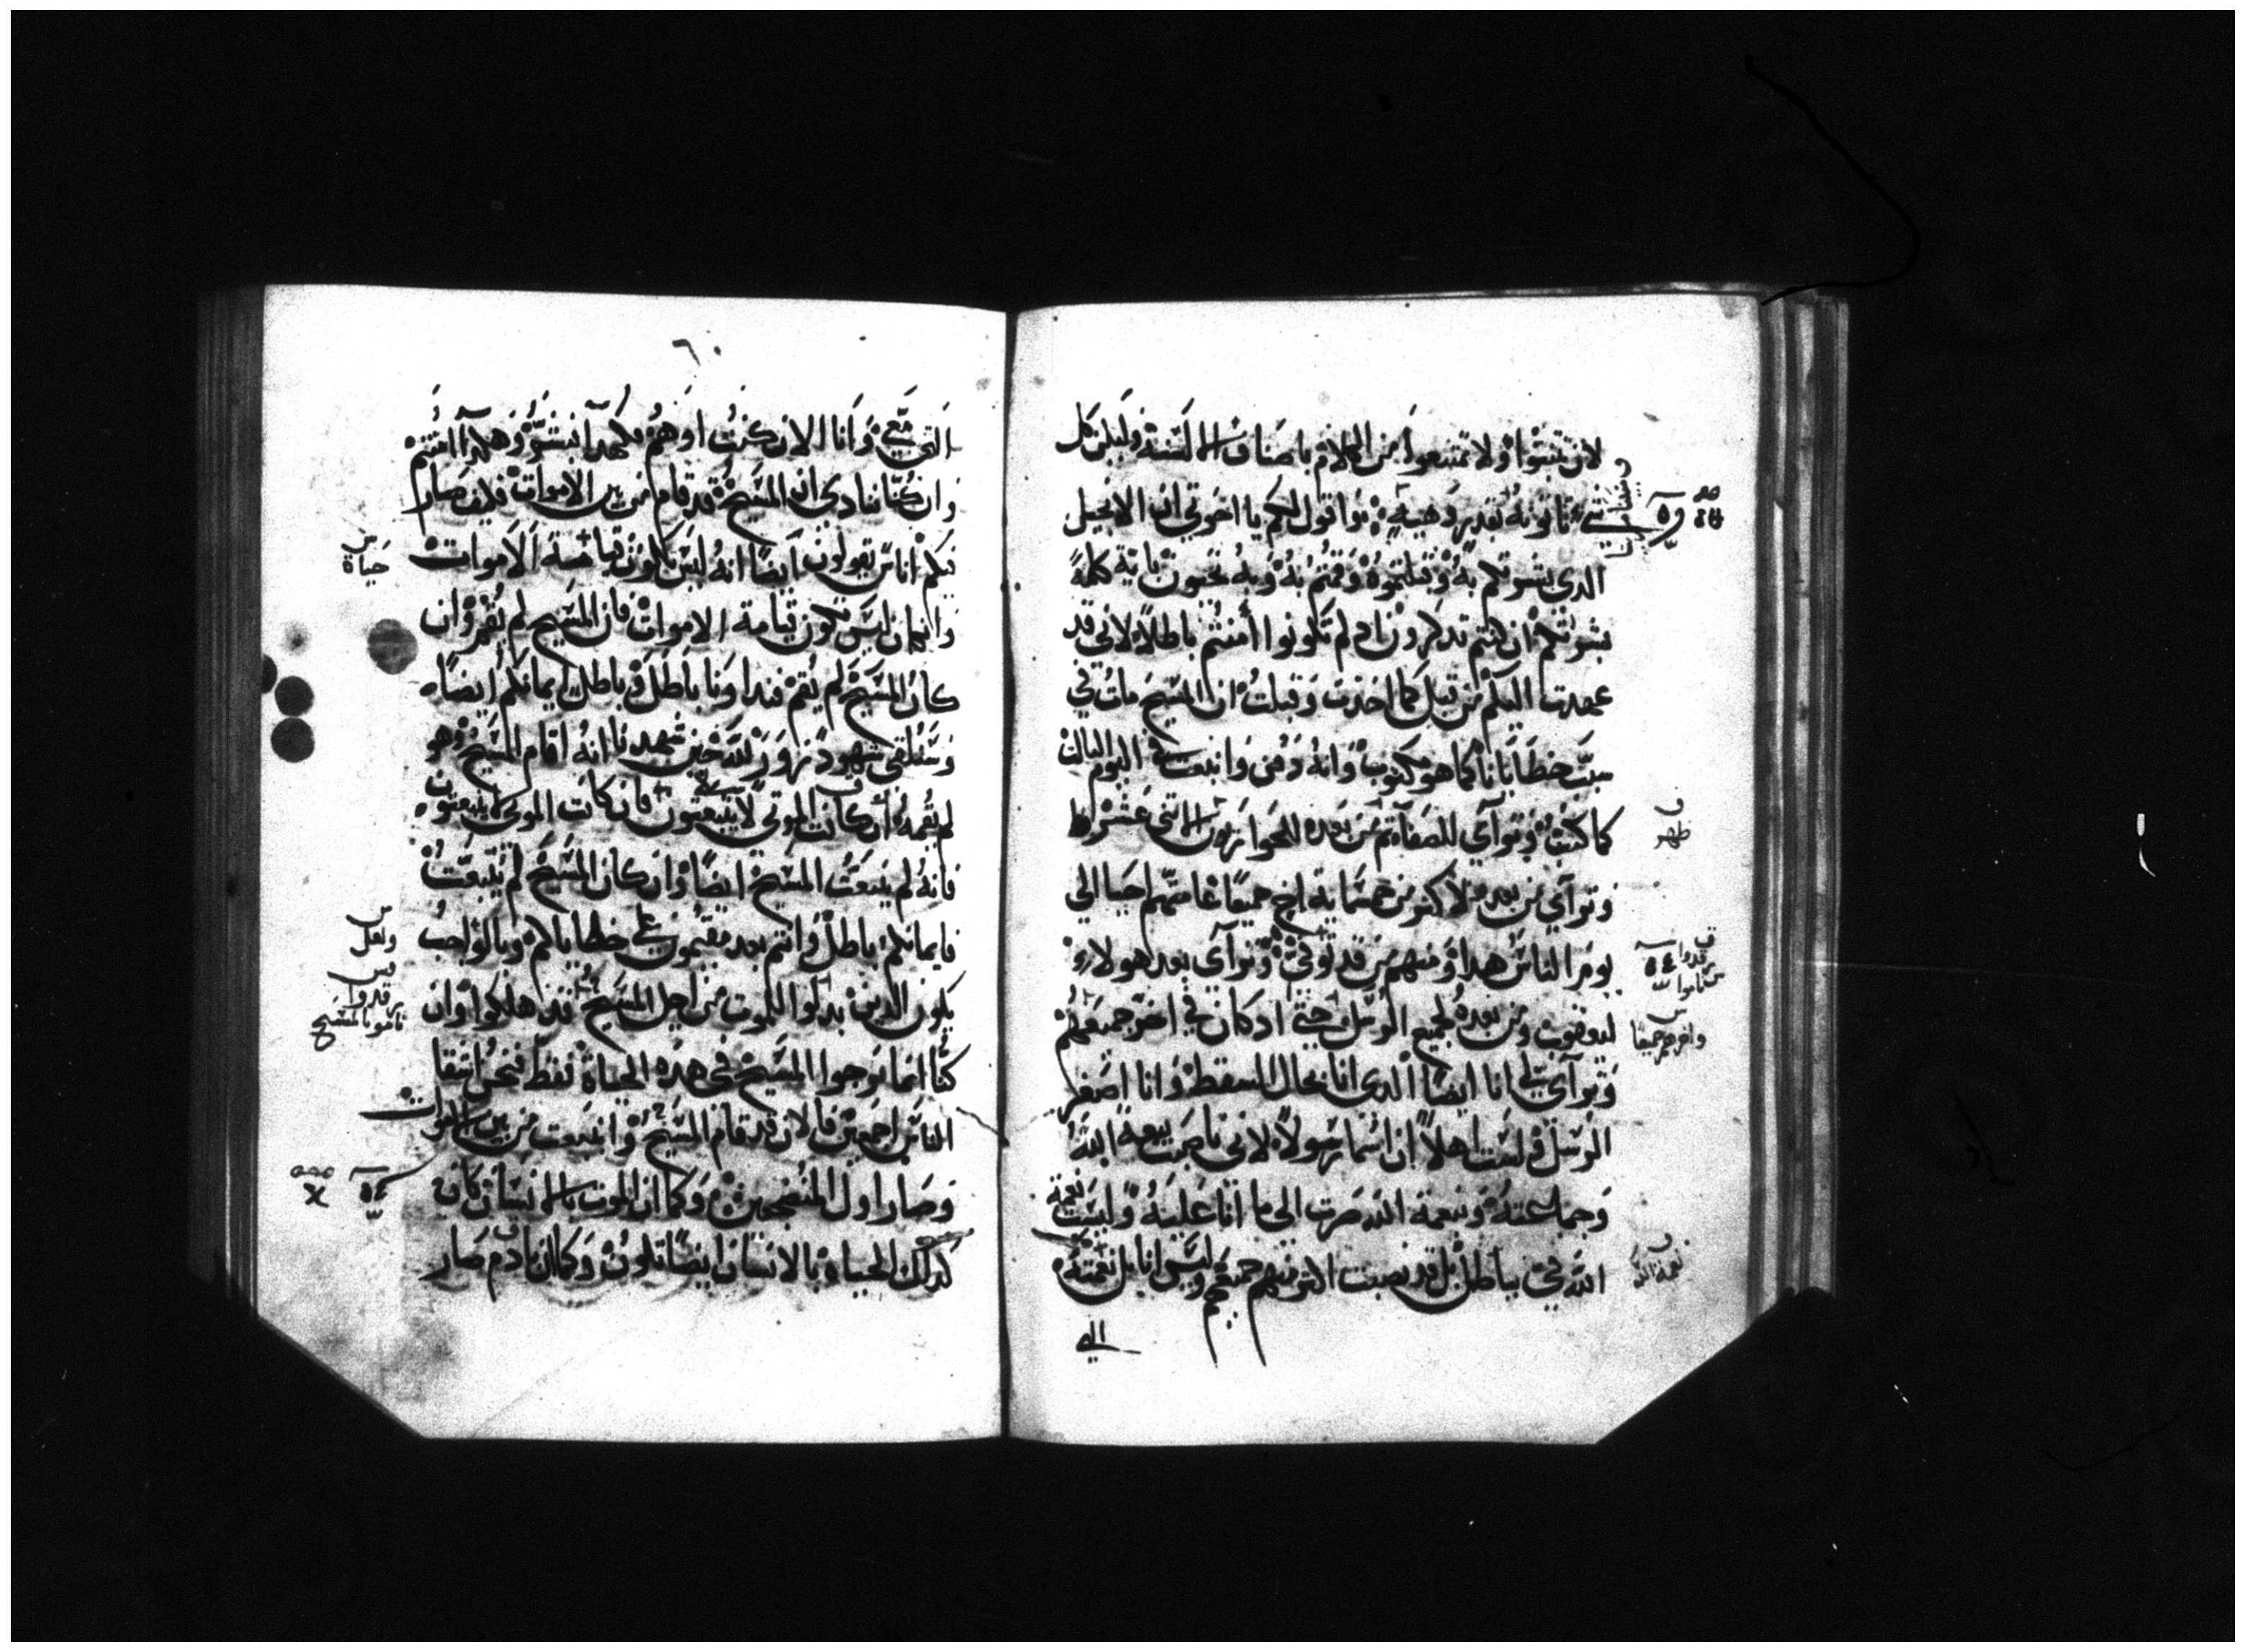 لان تتنبوا ولا تمتنعوا من الكلام باصناف الالسنة وليكن كل
شي ثانونه بقدر وهيبة واقول لكم يا اخوتي ان الانجيل
الدي بشرتكم به وقبلتموه وقمتم به وبه تحيون باية كلمة
بشرتكم ان كنتم تدكرون ادم لم تكونوا أمنتم باطلا لاني قد
عهدت اليكم من قبل كما اخدت وقبلت ان المسيح مات في
سبب خطايانا كما هو مكتوب وانه دفن وانبعث اليوم الثالث
كما كتب وتوآي للصفاتم من بعده للحواريون الاثني عشر
وتوآي من بعده لاكثر من خمسماية اخ جميعا عامتهم احيا الي
يومر الناس هدا ومنهم من قد توفي وتوآي بعد هولاء
ليعقوب ومن بعده لجميع الرسل حتي ادكان في اخر جميعهم
وتوآي لي انا ايضا الدي انا بحال السقط وانا اصغر
الرسل ولست اهلا ان اسما رسولا لاني ناصبت بيعة الله
وجماعته وبنعمة الله صرت الي ما انا عليه وليست نعمة
الله في بباطل بل قد نصبت اكثر منهم جميعهم وليس انا بل نعمته
الي
ظهر
رقدوا
ناموا
واخرهم جميعا
نعمة الله
٦٠
التي معي وانا الان كنت او هم فهكدا نبشر وهكدا امنتم
وان كنا ننادي ان المسيح قد قام من بين الاموات فكيف صار
فيكم اناس يقولون ايضا انه ليس تكون قيامة الاموات
وان كان ليس تكون قيامة الاموات فان المسيح لم يقم وان
كان المسيح لم يقم فنداونا باطل وباطل ايمانكم ايضا
وسنلفي شهود زور لله حين شهدنا انه اقام المسيح وهو
لم يقمه ان كانت الموتي لا ينبعثون فان كانت الموتي لا ينبعثون
فانه لم ينبعث المسيح ايضا وان كان المسيح لم ينبعث
فايمانكم باطل وانتم بعد مقيمون علي خطاياكم وبالواجب
يكون الدين بدلوا للموت من اجل المسيح قد هلكوا وان
كنا انما نوجوا المسيح في هده الحياة فقط فنحن اشقا
الناس اجمعين فالان قد قام المسيح وانبعث من بين الاموات
وصار اول المضجعين وكما ان الموت بالانسان كان
كدلك الحياة بالانسان ايضا تكون وكما ان بادم صار
حياة
ولعل
رقدوا
ناموا بالمسيح